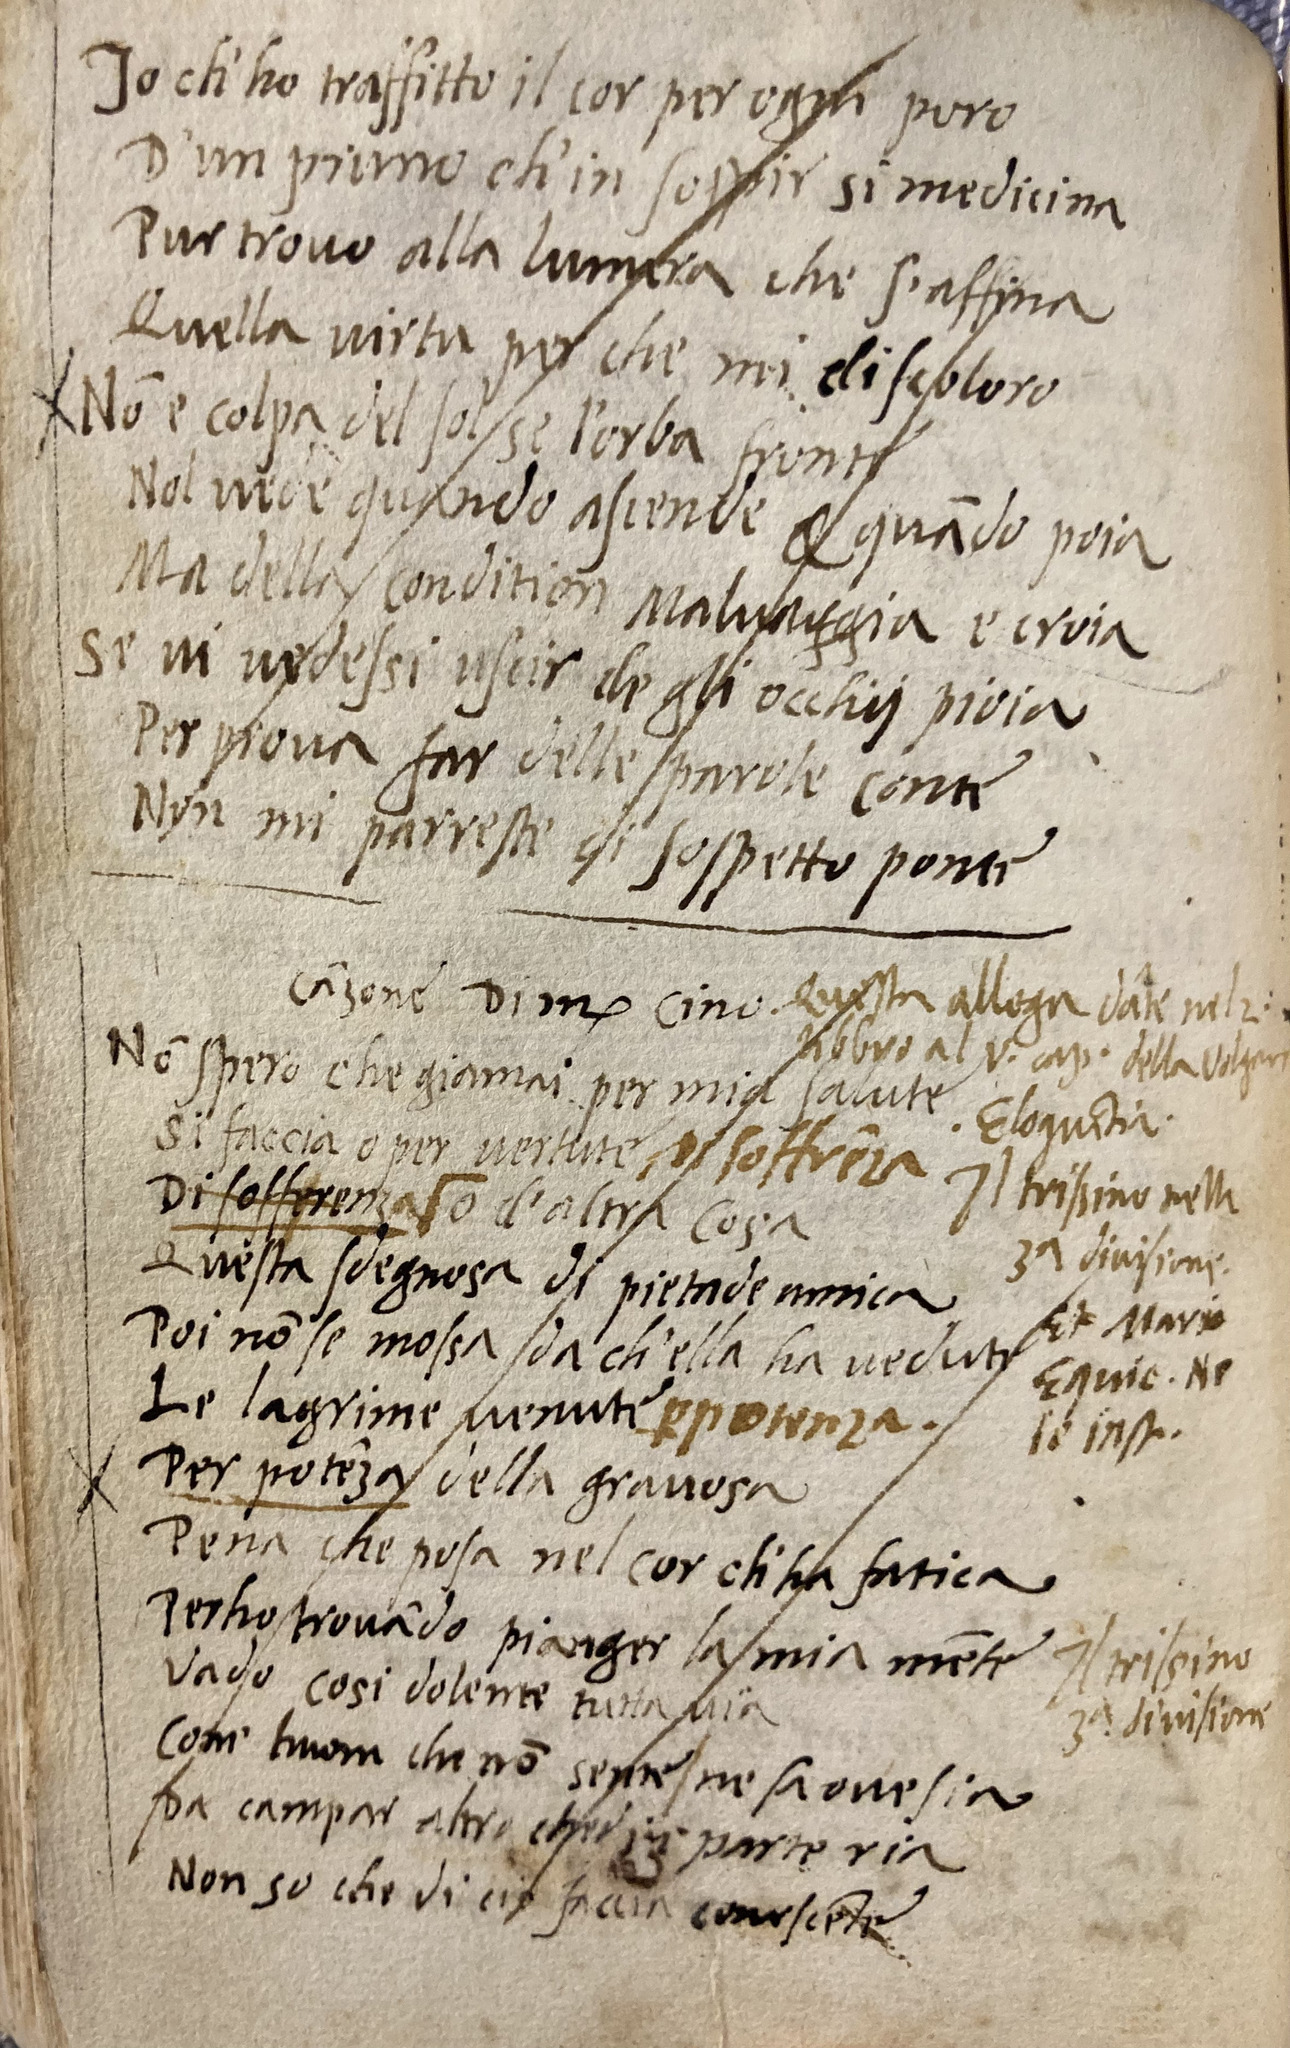 Io ch'ho traffitto il cor per ogni poro
D'un prumo ch'in sospir si medicina
Pur trovo alla lumera che s'affina
Quella virtu per che mi discoloro
Nõ e colpa del sol se l'orba fronte
Nol vede quando ascende & quãdo poia
Ma della condition Malvaggia e croia
Se vi vedessi uscir de gli occhij pioia
Per prova far delle parole conte
Non mi parreste di sospetto ponte
Cãzone Di m. Cino. Questa allega dãte nel 2.
libbro al v. cap. della Volgar
Eloquẽtia.
Nõ spero che giamai per mia salute
Si faccia o per vertute di soffrẽza
Di sofferenza o d'altra cosa
Il trissino nella
3ª divisione.
Questa sdegnosa di pietade amica
Poi nõ se mossa da ch'ella ha vedute
Et Mario
Equic. Ne
le inst.
Le lagrime venute p potenza.
Per potẽza della gravosa
Pena che posa nel cor ch'ha fatica
Perho trovãdo pianger la mia mẽte
Il trissino
3ª divisione
Vado cosi dolente tutta via
Come huom che nõ sente ne sa ove sia
Da campar altro che in parte ria
Non so che di cio faccia conoscẽte